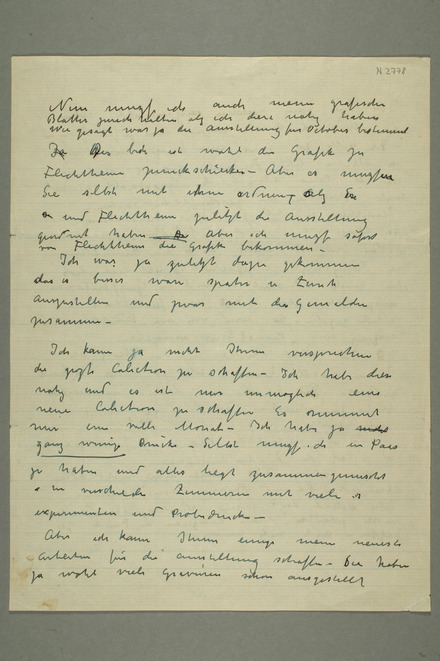 N 2778
Nun mußs ich auch meine grafischen
Blatter zurück halten als ich diese notig habe
Wie gesagt war ja die ausstellung für October bestimmt
Ja bitte ich wohl die Grafik zu
Flechtheim zurückschicken – Aber es mußs
Sie selbst mit ihm ordnen, als Sie
und Flechtheim zuletzt die Ausstellung
geordnet haben Aber ich mußs sofort
von Flechtheim die Grafik bekommen –
Ich war ja zuletzt dazu gekommen
das es besser ware spater in Zurich
auszustellen und zwar mit die Gemälde
zusammen –
Ich kann ja nicht Ihnen versprechen
die Colection zu schaffen – Ich habe diese
notig und es ist mir unmoglich eine
neue Colection zu schaffen Es nimmt
mir eine volle Monat – Ich habe ja
ganz wenige Drücke – Selbst mußs ich ein Paar
zu haben und alles liegt zusammengemischt
in verschiedene Zimmern mit viele
experimenten und Probedrucke –
Aber ich kann Ihnen einige meine neueste
Arbeiten für die ausstellung schaffen – Sie haben
ja wohl viele Gravüren schon ausgestellt